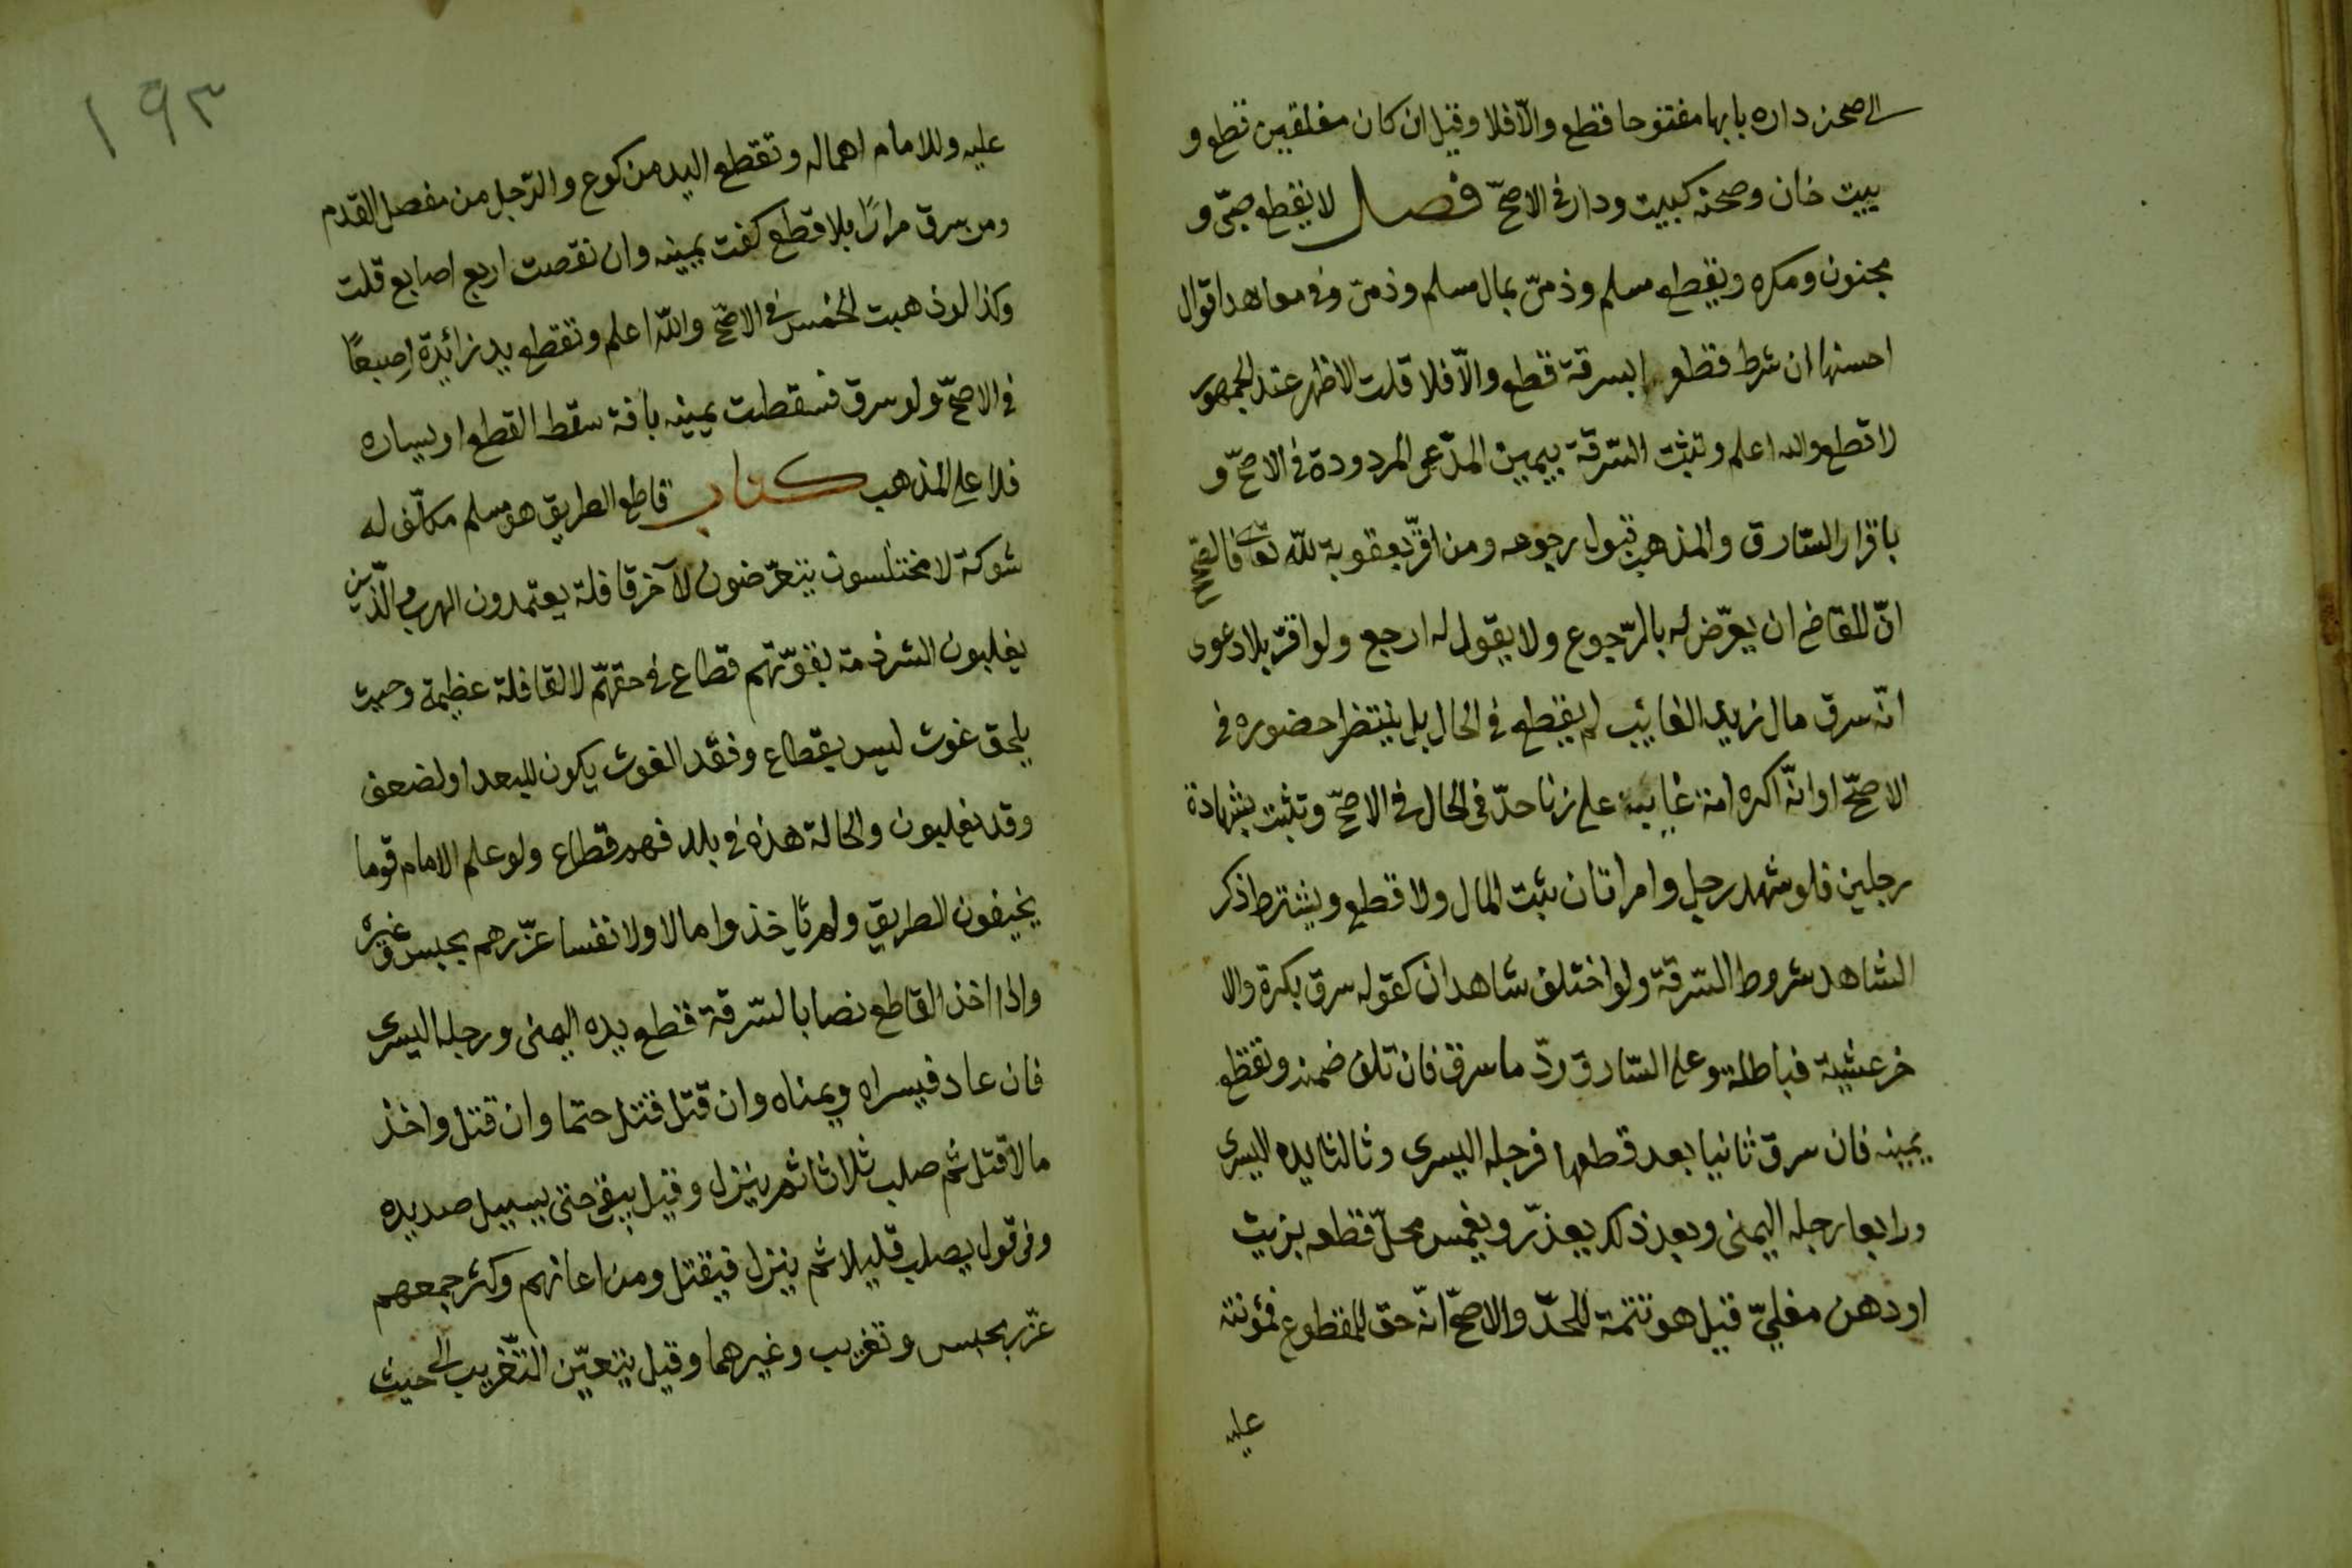 الى صحن داره بابها مفتوحا قطع والّا فلا وقيل ان كان مغلقين قطع و
بيت خان وصحنه كبيت ودار فى الاصحّ فصل لا يقطع صبىّ و
مجنون ومكره ويقطع مسلم وذمىّ بمال مسلم وذمىّ وفى معاهد اقوال
احسنها ان شرط قطعه بسرقة قطع والّا فلا قلت الاظهر عند الجمهور
لا قطع والله اعلم وتثبت السّرقة بيمين المدّعى المردودة فى الاصحّ و
باقرار السّارق والمذهب قبول رجوعه ومن اقرّ بعقوبة للّه تعالى فالصحيح
انّ للقاضى ان يعرّض له بالرّجوع ولا يقول له ارجع ولو اقرّ بلا دعوى
انّه سرق مال زيد الغائب لم يقطع فى الحال بل ينتظر حضوره فى
الاصحّ او انّه اكره امة غايبه على زنا حدّ فى الحال فى الاصحّ وتثبت بشهادة
رجلين فلو شهد رجل وامراتان ثبت المال ولا قطع ويشترط ذكر
الشاهد شروط السّرقة ولو اختلف شاهدان كقوله سرق بكرة والا
خر عشية فباطلة وعلى السّارق ردّ ما سرق فان تلف ضمنه وتقطع
يمينه فان سرق ثانيا بعد قطعها فرجله اليسرى وثالثا يده اليسرى
ورابعا رجله اليمنى وبعد ذلك يعذّر ويغمس محلّ قطعه بزيت
او دهن مغلىّ قيل هو تتمة للحدّ والاصحّ انّه حقّ للمقطوع فمؤنته
عليه
١٩٣
عليه وللامام اهماله وتقطع اليد من كوع والرّجل من مفصل القدم
ومن سرق مرارًا بلا قطع كفت يمينه وان نقصت اربع اصابع قلت
وكذا لو ذهبت الخمس فى الاصحّ واللّه اعلم وتقطع يد زائدة اصبعًا
فى الاصحّ ولو سرق فسقطت يمينه بافة سقط القطع او يساره
فلا على المذهب كتاب قاطع الطريق هو مسلم مكلّف له
شوكة لا مختلسون يتعرّضون لآخر قافلة يعتمدون الهرب والّذين
يغلبون الشرذمة بقوّتهم قطاع فى حقهّم لا لقافلة عظيمة وحيث
يلحق غوث ليس بقطاع وفقد الغوث يكون للبعد او لضعف
وقد يغلبون والحالة هذه فى بلد فهم قطاع ولو علم الامام قوما
يخيفون الطريق ولم يأخذوا مالا ولا نفسا عزّرهم بحبس وغيره
واذا اخذ القاطع نصابا لسّرقة قطع يده اليمنى ورجله اليسرى
فان عاد فيسراه ويمناه وان قتل قتل حتما وان قتل واخذ
مالا قتل ثم صلب ثلاثا ثم ينزل وقيل يبقى حتى يسيل صديده
وفى قول يصلب قليلا ثم ينزل فيقتل ومن اعانهم وكثر جمعهم
عزّر بحبس وتغريب وغيرهما وقيل يتعيّن التّغريب الى حيث